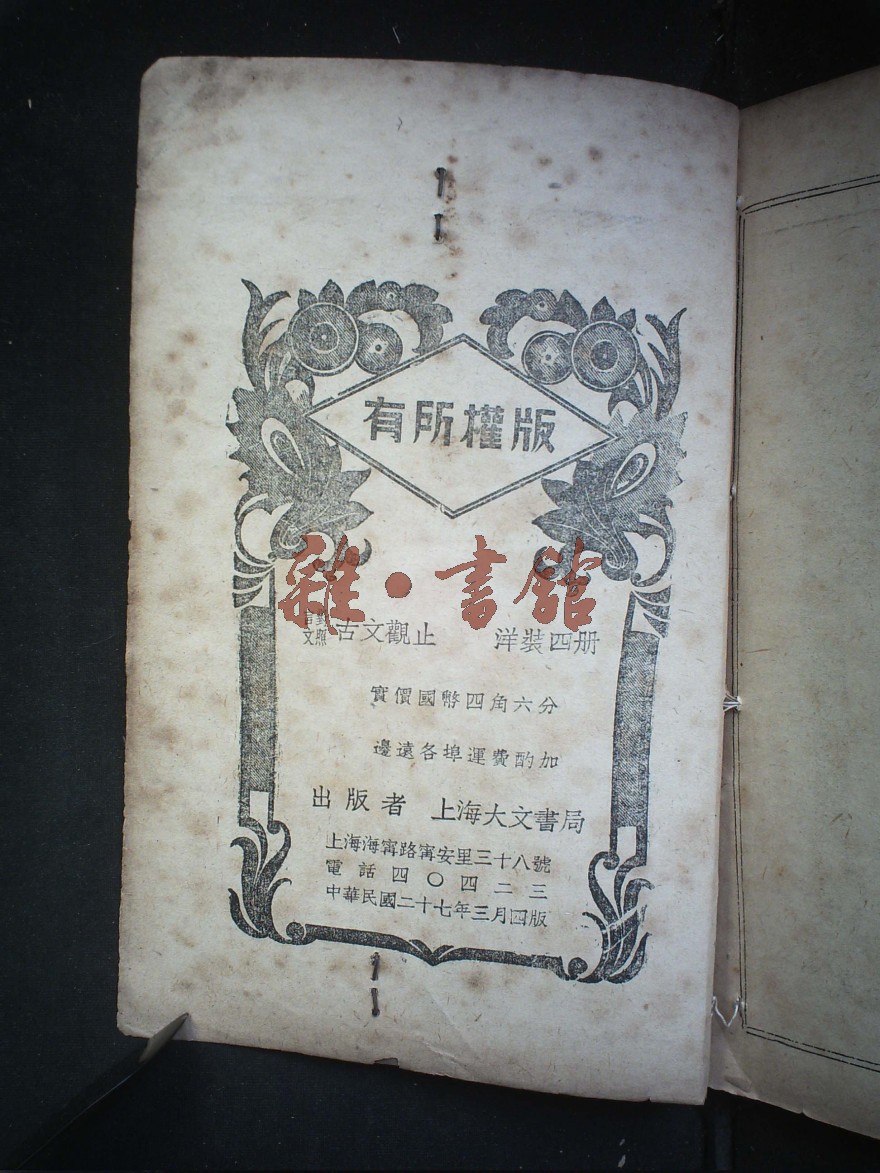 版權所有
雜·書館
言文對照 古文觀止 洋裝四册
實價國幣四角六分
邊遠各埠運費酌加
出版者 上海大文書局
上海海甯路甯安里三十八號
電話四〇四二三
中華民國二十七年三月四版